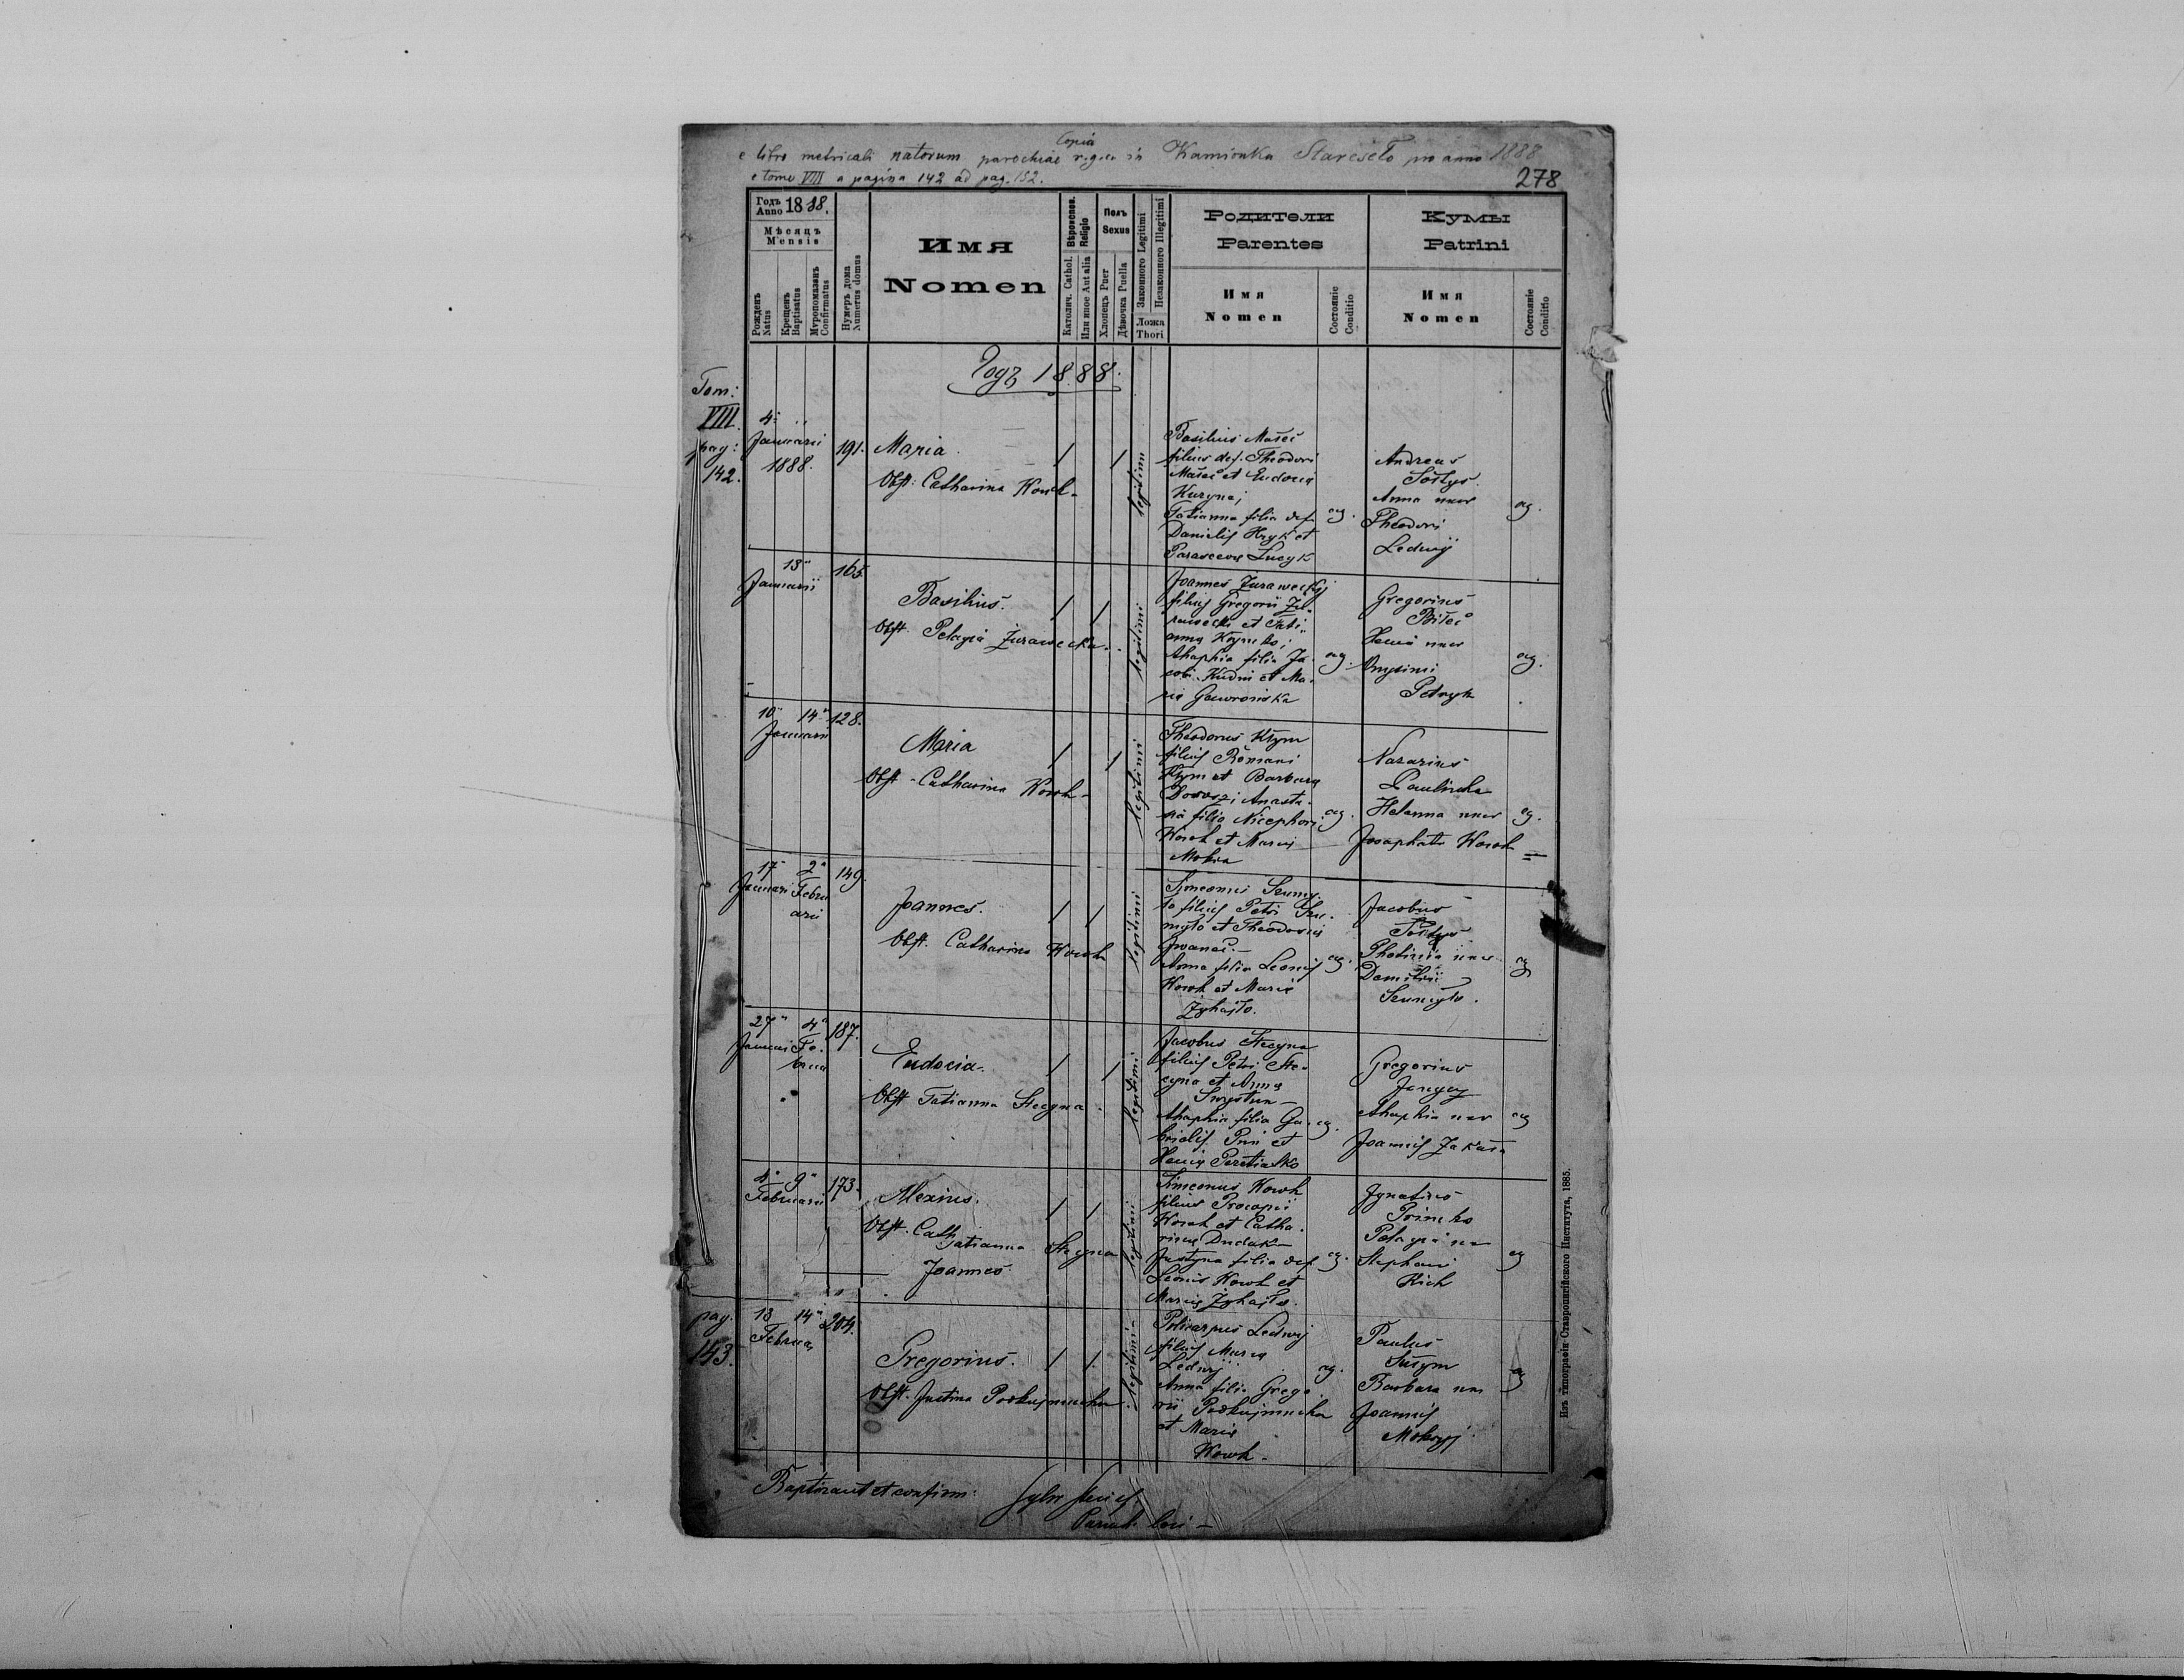 Copia
e libro metricali natorum parochiae r. g. cu in Kamionka Staresełо pro anno 1888
e tomo VIII a pagina 142 ad pag. 152.
278
Годъ Anno 1888.
Мѣсяцъ Mensis
Рожденъ Natus
Крещенъ Baptisatus
Мѵропомазанъ Confirmatus
Нумеръ дома Numerus domus
Имя
Nomen
Вѣроиспов. Religio
Католич. Cathol.
Или иное Aut alia
Полъ Sexus
Хлопецъ Puer
Дѣвочка Puella
Законного Legitimi
Незаконного Illegitimi
Ложа Thori
Родители
Parentes
Имя
Nomen
Состояніе Conditio
Кумы
Patrini
Имя
Nomen
Состояніе Conditio
Годъ 1888.
Tom:
VIII.
pag:
142.
4.
Januarii
1888.
191.
Maria
Obst: Catharina Kowch
legitimi
Basilius
filius def. Theodori
et Eudocia
Tatianna filia def.
Danielis Hryk et
Parascevae Łucyk
ag.
Andreas
Sołtys
Anna uxor
Theodori
Ledwij
ag.
13"
Januarii
165.
Basilius.
Obst. Pelagia Żurawecka.
legitimi
Joannes Żuraweckij
filius Gregorii Żu-
rawecki et Tati-
anna
Ahaphia filia Ja-
cobi Kudin et Ma-
ria Gawrońska
ag.
Gregorius
Biłeć
Henia uxor
Onysimi
Petryk
ag.
10" 14"
Januarii
128.
Maria
Obst. Catharina Kowch
legitimi
Theodorus Kłym
filius Romani
Kłym et Barbara
Anasta-
sia filia Nicephori
Kowch et Maria
Mokra
ag.
Nazarius
Pawliszka
Helanna uxor
Josaphati Kowch
ag.
17" 2"
Januari Febru
arii
149.
Joannes.
Obst. Catharina Kowch
legitimi
Simeonus Szumy-
ło filius Petri Szu-
myło et Theodosia
Iwaneć.
Anna filia Leonis
Kowch et Maria
Zyhajło.
ag.
Jacobus
Sołtys
Photinia uxor
Demitrii
Szumyło.
ag
27" 4"
Januari Fe-
brua
187.
Eudocia.
Obst Tatianna Stecyna
legitimi
Jacobus Stecyna
filius Petri Ste-
cyna et Anna
Ahaphia filia Ga-
brielis et
Henia Peretiatko
ag.
Gregorius
Ahaphia uxor
Joannis
ag
4" 9"
Februarii
173.
Alexius.
Obst. Cath
Tatianna Stecyna
Joannes
legitimi
Simeonus Kowch
filius Procopii
Kowch et Catha-
rina Dudak
Justyna filia def.
Leonis Kowch et
Maria Zyhajło.
ag.
Ignatius
Pelagia uxor
Stephani
Kich
ag
pag.
143.
13 14"
Februa
204.
Gregorius.
Obst. Justina Podkujmucha
legitimi
Policarpus Ledwij
filius Maria
Ledwij
Anna filia Grego-
rii Podkujmucha
et Maria
Kowch.
ag.
Paulus
Barbara uxor
Joannis
Mokryj
ag
Baptisavit et confirm:
Paroch. loci
Изъ типографіи Ставропигійского Института, 1885.